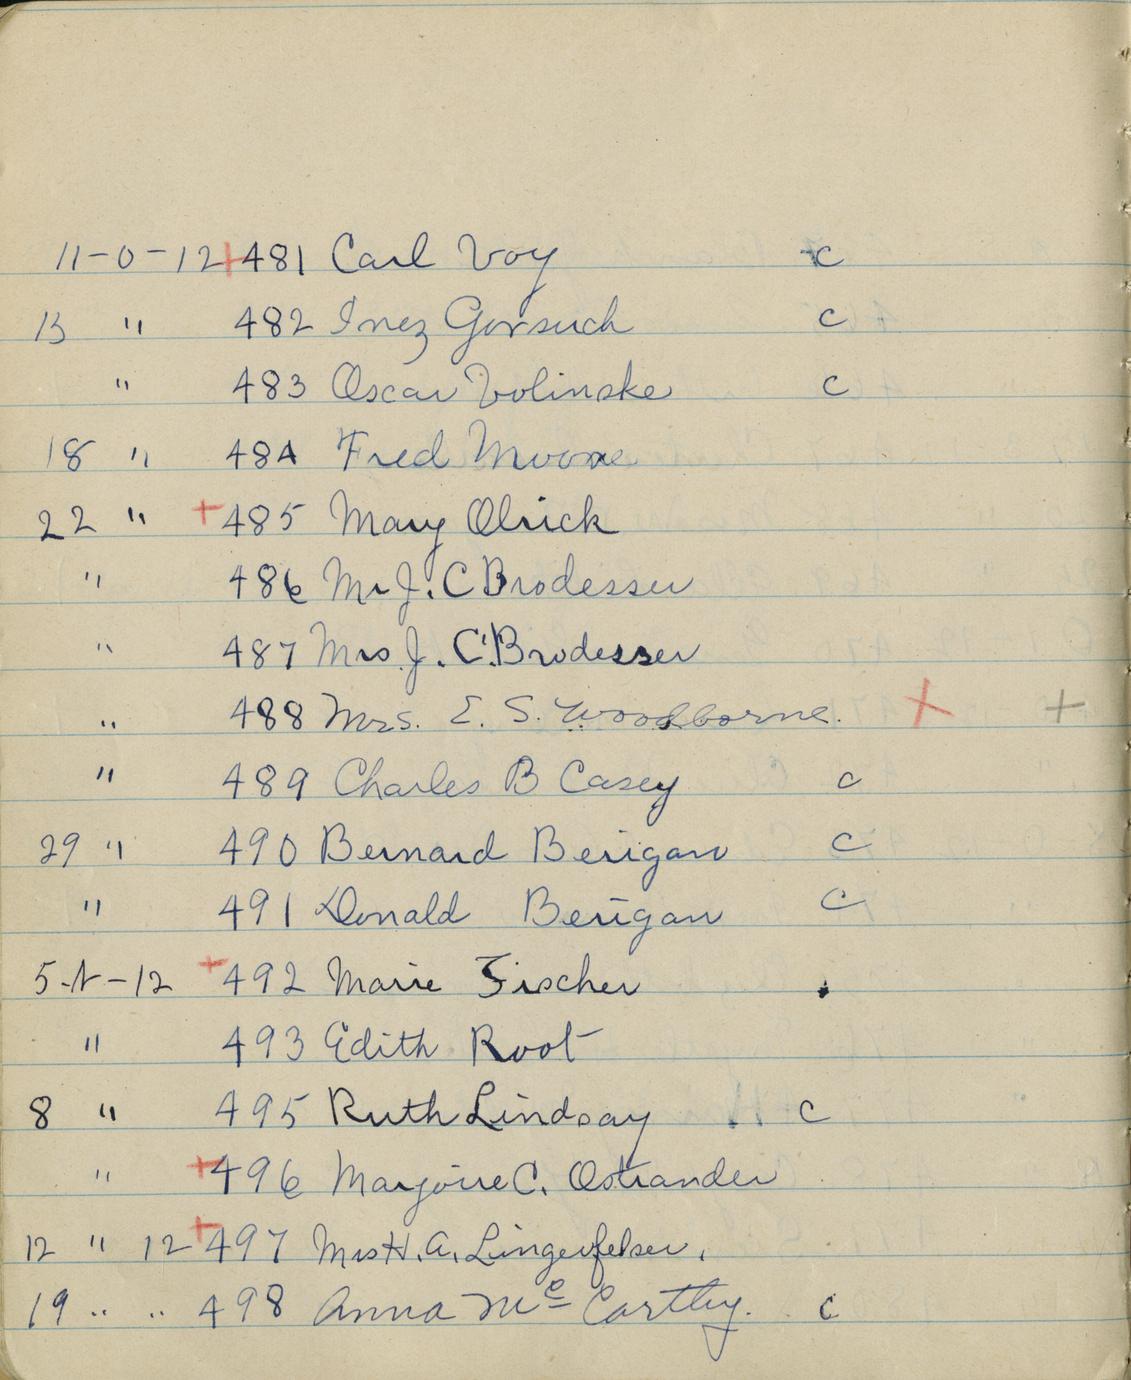 11-0-12 + 481 Carl Voy c
13 " 482 Inez Gorsuch c
" 483 Oscar Volinske c
18 " 484 Fred Moore
22 " + 485 Mary Olrick
" 486 Mr J. C Brodesser
" 487 Mrs J. C. Brodesser
" 488 Mrs. E. S. Woodborne. + +
" 489 Charles B Casey c
29 " 490 Bernard Berigan c
" 491 Donald Berigan c
5-N-12 + 492 Marie Fischer
" 493 Edith Root
8 " 495 Ruth Lindsay c
" + 496 Marjorie C. Ostrander
12 " 12 + 497 Mrs H. A. Lingerfelser.
19 " " 498 Anna Mc Carthy. c